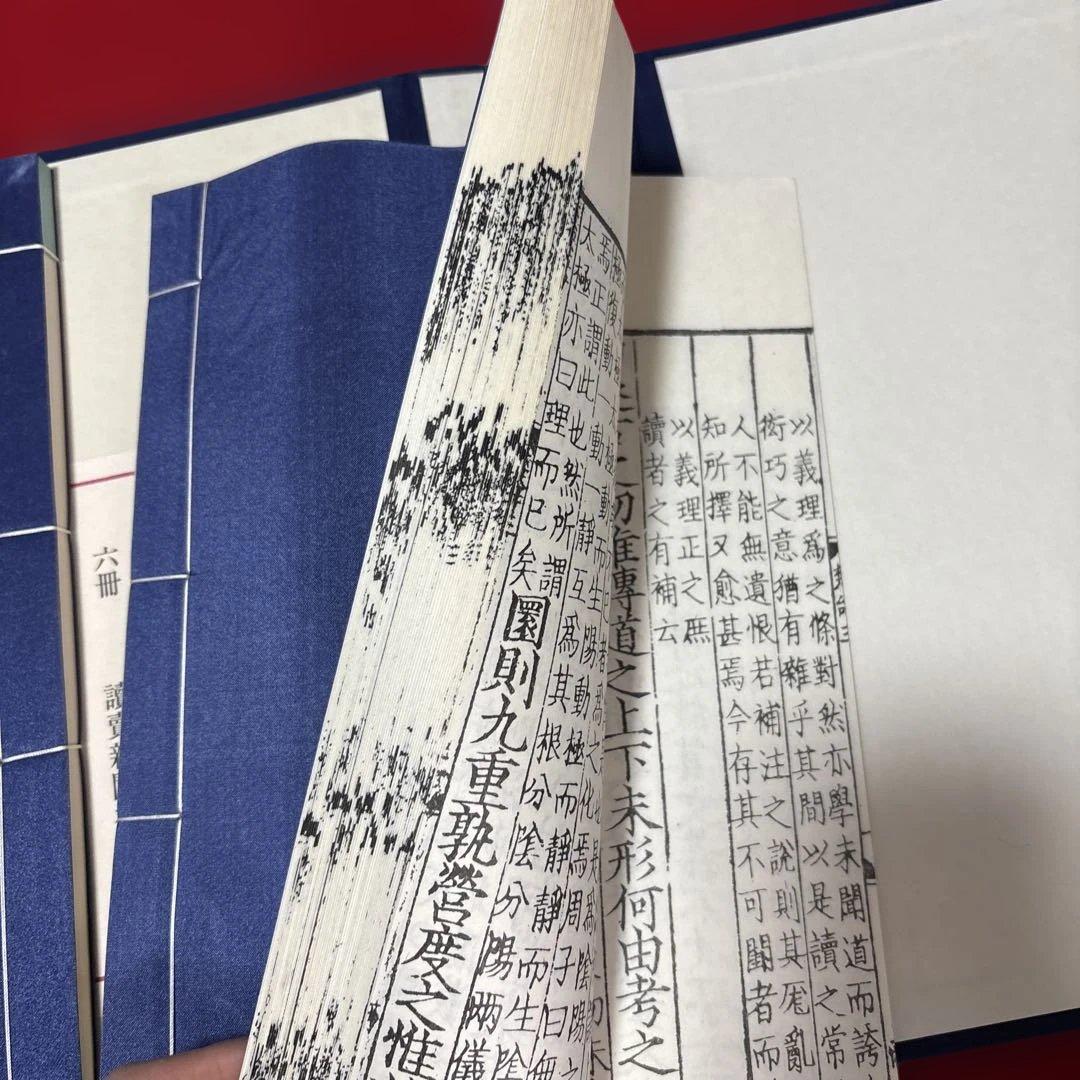 以義理爲之條對然亦學未聞道而誇
衒巧之意猶有雜乎其間以是讀之常
人不能無遺恨若補注之說則其厖亂
知所擇又愈甚焉今存其不可闕者而
以義理正之庶
讀者之有補云
之初誰傳道之上下未形何由考之
爲陰陽之
化焉周子曰無
極動而生陽動極而靜靜而生陰
極復動一動一靜互爲其根分陰分陽兩儀
焉正謂此也然所謂
太極亦曰理而已矣
圜則九重孰營度之惟
六冊
讀賣新